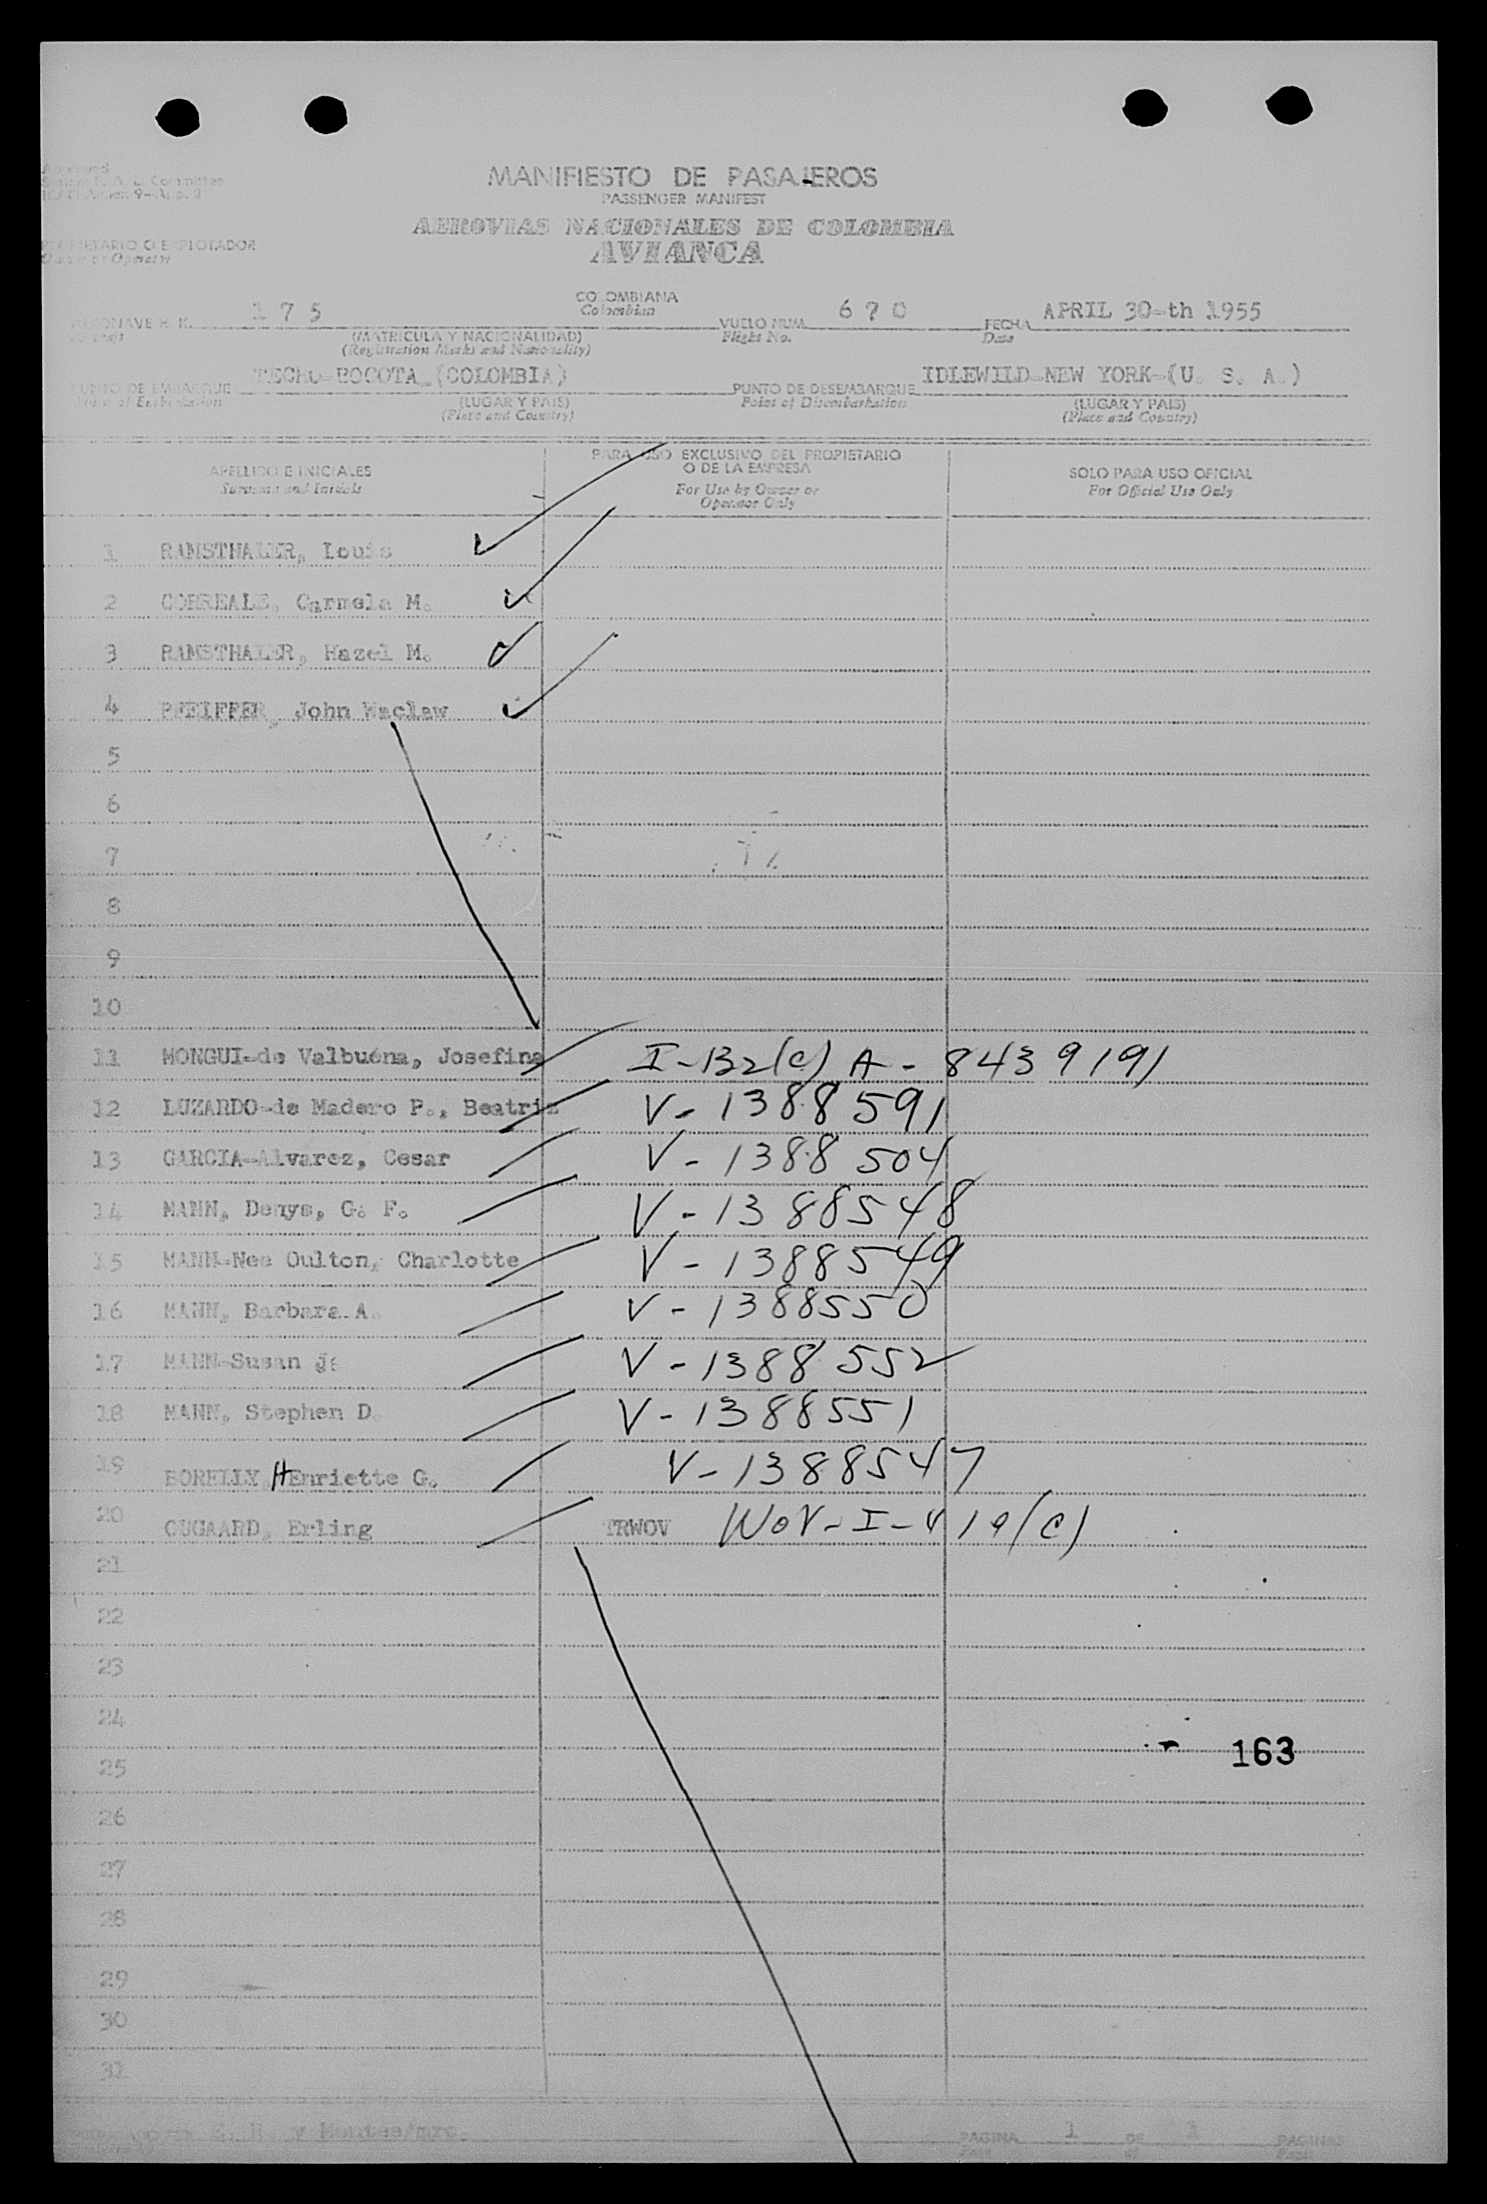 MANIFIESTO DE PASAJEROS
PASSENGER MANIFEST
AEROVIAS NACIONALES DE COLOMBIA
AVIANCA
PROPIETARIO O EXPLOTADOR
Owner or Operator
175
COLOMBIANA
Colombian
670
APRIL 30-th 1955
(MATRICULA Y NACIONALIDAD)
(Registration Marks and Nationality)
VUELO NUM.
Flight No.
FECHA
Date
TECHO-BOGOTA-(COLOMBIA)
IDLEWILD-NEW YORK-(U. S. A.)
PUNTO DE EMBARQUE
PUNTO DE DESEMBARQUE
Point of Disembarkation
(LUGAR Y PAIS)
(Place and Country)
(LUGAR Y PAIS)
(Place and Country)
APELLIDO E INICIALES
Surname and Initials
PARA USO EXCLUSIVO DEL PROPIETARIO
O DE LA EMPRESA
For Use by Owner or
Operator Only
SOLO PARA USO OFICIAL
For Official Use Only
1 RAMSTHALER, Louis
2 CORREALE, Carmela M.
3 RAMSTHALER, Hazel M.
4 PFEIFFER, John Waclaw
5
6
7
8
9
10
11 MONGUI-de Valbuena, Josefina I-132(c) A-8439191
12 LUZARDO-de Madero P., Beatriz V-1388591
13 GARCIA-Alvarez, Cesar V-1388504
14 MANN, Denys, G. F. V-1388548
15 MANN-Nee Oulton, Charlotte V-1388549
16 MANN, Barbara A. V-1388550
17 MANN-Susan J. V-1388552
18 MANN, Stephen D. V-1388551
19 BORELLY HEnriette G. V-1388547
20 OUGAARD, Erling TRWOV WOV-I-419(c)
21
22
23
24
163
25
26
27
28
29
30
31
PAGINA 1 DE 1 PAGINAS